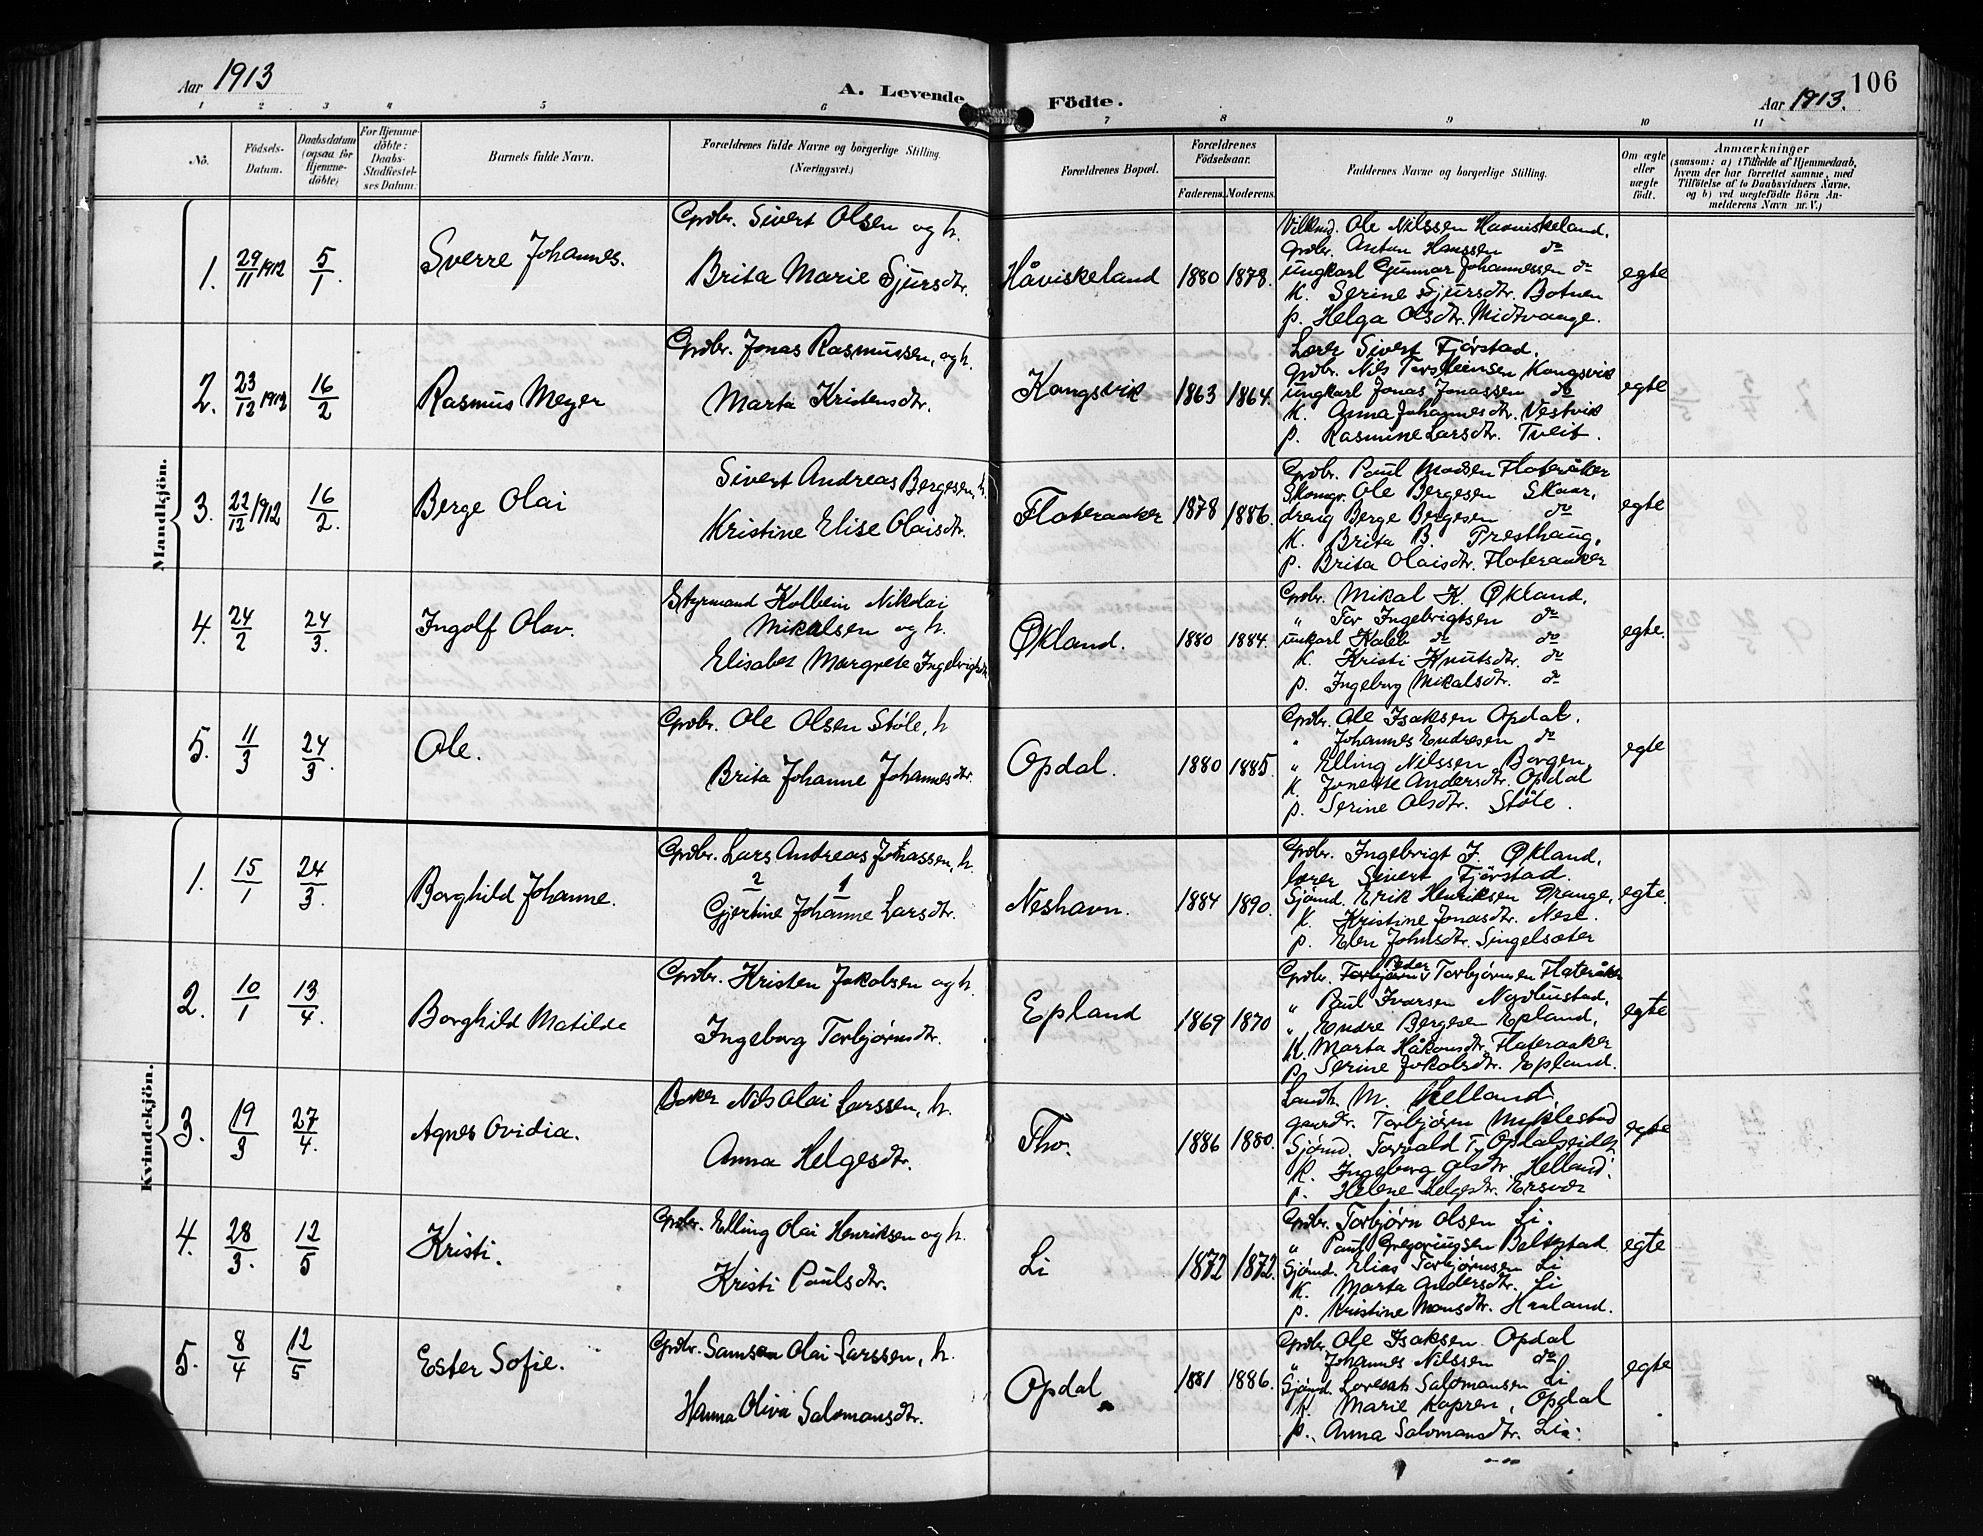 Aar 1913
A. Levende
Födte.
Aar 1913.
106
1 2 3 4 5 6 7 8 9 10 11
No.
Födsels-
Datum.
Daabsdatum
(ogsaa for
Hjemme-
döbte)
For Hjemme-
döbte:
Daabs-
Stadfæstel-
ses Datum.
Barnets fulde Navn.
Forældrenes fulde Navne og borgerlige Stilling.
(Næringsvei.)
Forældrenes Bopæl.
Forældrenes
Födselsaar.
Faderens. Moderens.
Faddernes Navne og borgerlige Stilling.
Om ægte
eller
uægte
födt.
Anmærkninger
(saasom: a) i Tilfælde af Hjemmedaab,
hvem der har forrettet samme, med
Tilföielse af to Daabsvidners Navne,
og b) ved uægtefödte Börn An-
melderens Navn m. V.)
Mandkjön.
1. 29/11 1912 5/1. Sverre Johannes.
Grdbr. Sivert Olsen og h.
Brita Marie Sjursdtr.
Håviskeland 1880 1878.
Ole Nilssen Haaviskeland.
Grdbr. Anton Hanssen do
ungkarl Gunnar Johannessen do
K. Serine Sjursdtr. Botnen
p. Helga Olsdtr. Midtvange.
egte
2. 23/12 1912 16/2 Rasmus Meyer
Grdbr. Jonas Rasmussen, og h.
Marta Kristensdtr.
Kongsvik 1863 1864.
Lærer Sivert Fjørstad.
Grdbr. Nils Torsteinsen Kongsvik
ungkarl Jonas Jonassen do
K. Anna Johannesdtr. Vestvik
p. Rasmine Larsdtr. Tveit.
egte
3. 22/12 1912 16/2. Berge Olai
Sivert Andreas Bergesen, h.
Kristine Elise Olaisdtr.
Flateraaker 1878 1886.
Grdbr. Paul Madsen Flateråker
Skomgr. Ole Bergesen Skaar,
dreng Berge Bergesen do
K. Brita B. Presthaug.
p. Brita Olaisdtr. Flateraaker
egte
4. 24/2 24/3. Ingolf Olav.
Styrmand Kolbein Nikolai
Mikalsen og h.
Elisabet Margrete Ingebrigtsdtr.
Økland. 1880 1884.
Grdbr. Mikal K. Økland.
" Tor Ingebrigtsen do
unkarl Kaleb do do
K. Kristi Knutsdtr. do
p. Ingeborg Mikalsdtr. do
egte.
5. 11/3 24/3. Ole.
Grdbr. Ole Olsen Støle, h
Brita Johanne Johannesdtr.
Opdal. 1880 1885.
Grdbr. Ole Isaksen Opdal.
" Johannes Endresen do
" Elling Nilssen Borgen,
K. Jonette Andersdtr. Opdal
p. Serine Olsdtr. Støle.
egte
Kvindekjön.
1. 15/1 24/3. Borghild Johanne.
Grdbr. Lars Andreas Johassen, h.
2 1
Gjertine Johanne Larsdtr.
Neshavn. 1884 1890.
Grdbr. Ingebrigt J. Økland.
lærer Sivert Fjørstad.
Sjømd. Erik Henriksen Drange,
K. Kristine Jonasdtr. Nese.
p. Elen Johnsdtr. Singelsæter
egte.
2. 10/1 13/4. Borghild Matilde
Grdbr. Kristen Jakobsen og h.
Ingeborg Torbjørnsdtr.
Epland 1869 1870
Grdbr. Torbjørn Peder Torbjørnsen Flateråker
" Paul Ivarsen Nordhustad,
" Endre Bergesen Epland,
K. Marta Håkonsdtr. Flateraaker
p. Serine Jakobsdtr. Epland.
egte
3. 19/3 27/4. Agnes Ovidia.
Baker Nils Olai Larssen, h.
Anna Helgesdtr.
Tho. 1886 1880.
Landh. M. Helland.
Torbjørn Myklestad
Sjömd. Torvald T. Opdalseidet
K. Ingeborg Olsdtr. Helland.
p. Helene Helgesdtr. Ersvær
egte
4. 28/3. 12/5 Kristi.
Grdbr. Elling Olai Henriksen og h.
Kristi Paulsdtr.
Li 1872 1872.
Grdbr. Torbjørn Olsen Li.
" Paul Gregoriussen Beltestad
Sjömd. Elias Torbjørnsen Li
K. Marta Andersdtr. Li
p. Kristine Monsdtr. Haaland.
egte
5. 8/4 12/5 Ester Sofie.
Grdbr. Samson Olai Larssen, h.
Hanna Oliva Salomansdtr.
Opdal 1881 1886.
Grdbr. Ole Isaksen Opdal
" Johannes Nilssen do
Sjömd. Salomansen Li
K. Marie Opdal
p. Anna Salomansdtr. Li.
egte